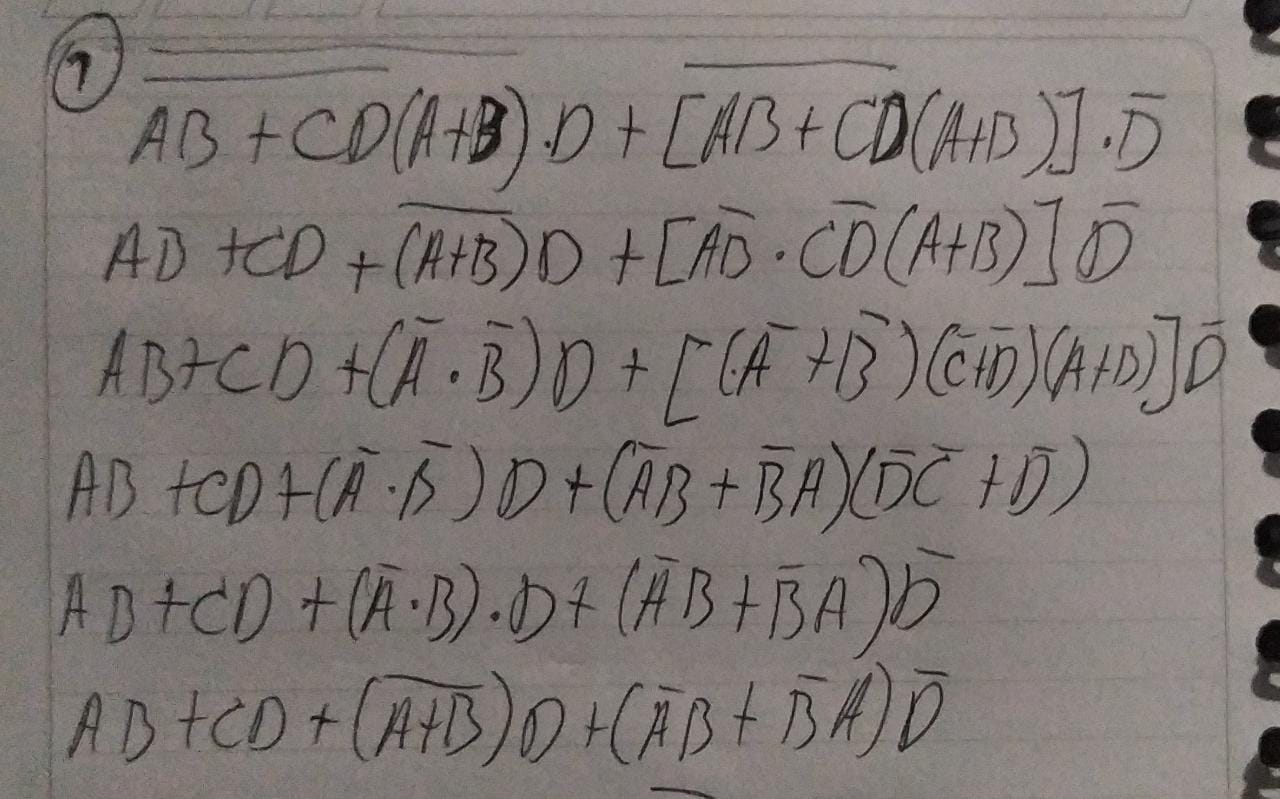 1
AB + CD(A+B).D + [AB + CD(A+B)].D̅
AB + CD + (A̅+̅B̅)D + [A̅B̅ . C̅D̅(A+B)]D̅
AB+CD +(A̅ . B̅)D + [(A̅ + B̅)(C̅+D̅)(A+B)]D̅
AB +CD+(A̅ . B̅)D + (A̅B + B̅A)(D̅C̅ + D̅)
AB+CD +(A̅.B).D+ (A̅B+B̅A)D̅
AB +CD +(A̅+̅B̅)D +(A̅B + B̅A)D̅